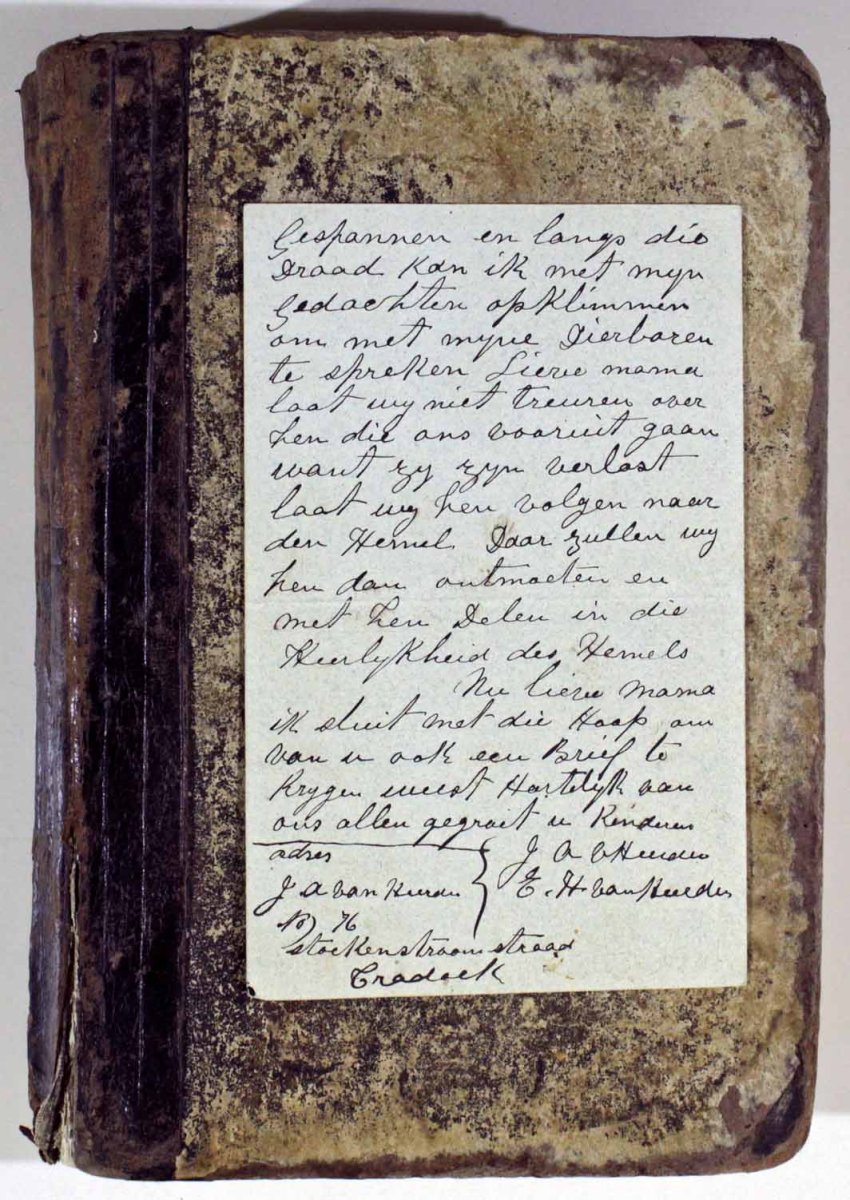 Gespannen en langs die
Draad Kan ik met myn
Gedachten opklimmen
om met myne Dierbaren
te spreken Lieve mama
laat wy niet treuren over
hen die ons vooruit gaan
want zy zyn verlost
laat wy hen volgen naar
den Hemel Daar zullen wy
hen dan ontmoeten en
met hen Delen in die
Heerlykheid des Hemels
Nu lieve mama
ik sluit met die Hoop om
van u ook een Brief te
Krygen weest Hartelyk van
ons allen gegroet u Kinderen
adres
J A v Heerden
J A van Heerden
E. H. van Heerden
76
Stockenstroom straad
Cradock